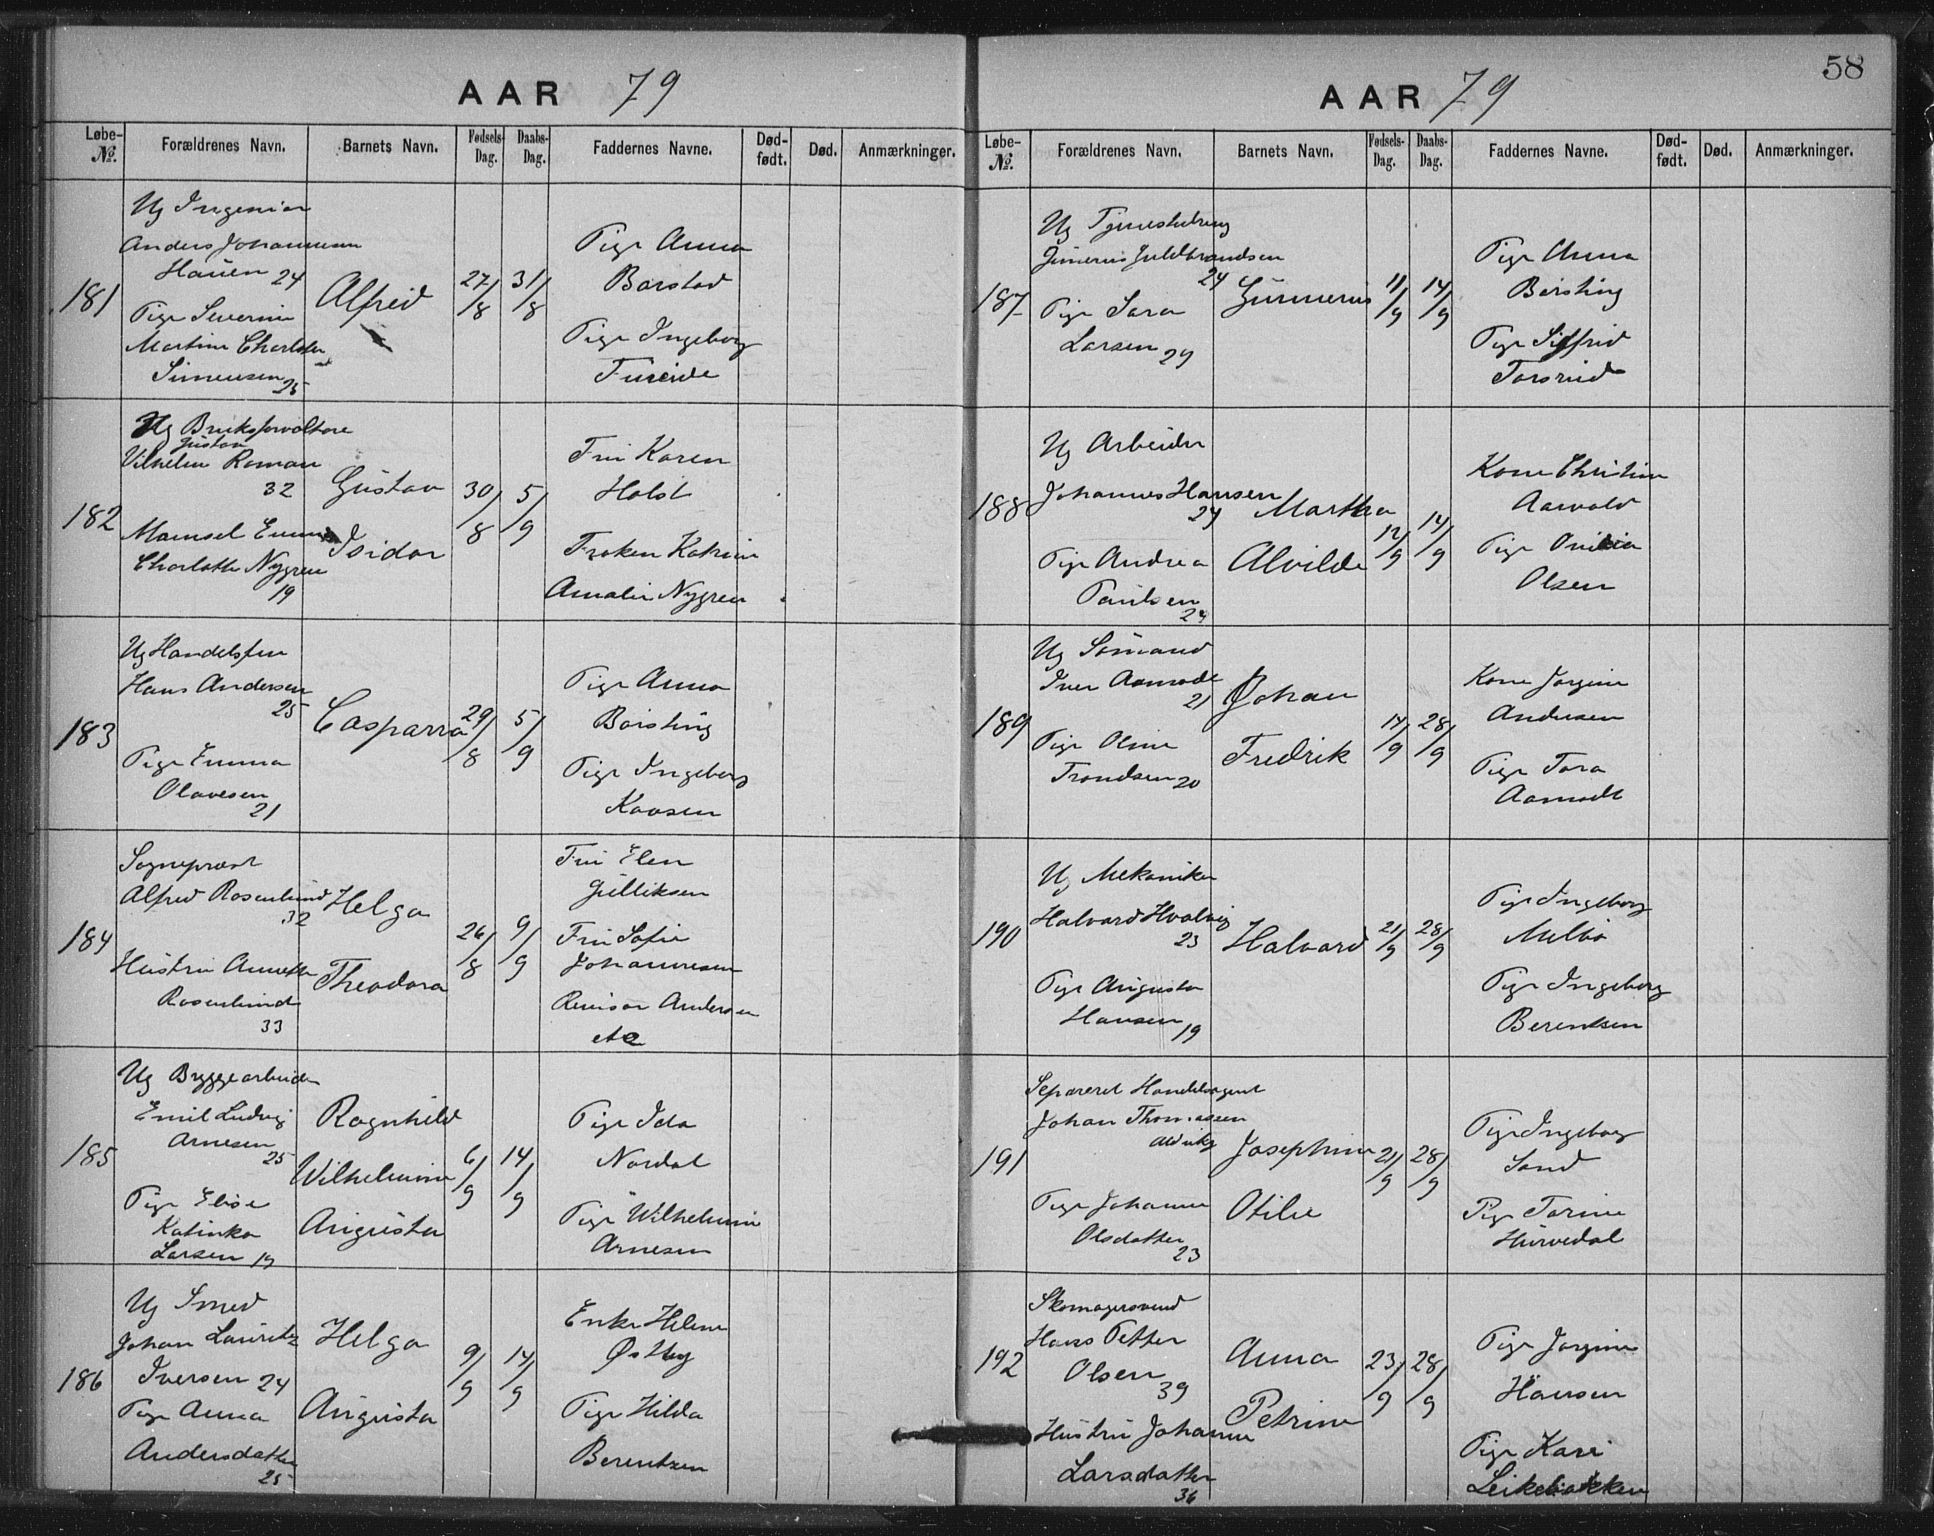 AAR 79
Løbe-№. Forældrenes Navn. Barnets Navn. Fødsels-Dag. Daabs-Dag. Faddernes Navne. Død-født. Død. Anmærkninger.
181
Ug Ingeniør
Anders Johannesen
Hauen 24
Pige Severine
Martine Charlotte
Simensen 25
Alfred
27/8
31/8
Pige Anna
Barstad
Pige Ingeborg
Fureide
182
Ug Bruksforvaltere
Gustav
Vilhelm Roman
32
Mamsel Emma
Charlotte Nygren
19
Gustav
Isidor
30/8
5/9
Fru Karen
Holst
Frøken Katrine
Amalie Nygren
183
Ug Handelsfm
Hans Andersen
25
Pige Emma
Olavesen
21
Casparra
29/8
5/9
Pige Anna
Børsting
Pige Ingeborg
Kaasen
184
Sogneprest
Alfred Rosenlund
32
Hustru Annette
Rosenlund
33
Helga
Theodora
26/8
9/9
Fru Elen
Gulliksen
Fru Sofie
Johannesen
Revisor Andersen
etc
185
Ug Bryggearbeider
Emil Ludvig
Arnesen
25
Pige Elise
Katinka
Larsen 19
Ragnhild
Wilhelmine
Augusta
6/9
14/9
Pige Ida
Nordal
Pige Wilhelmine
Arnesen
186
Ug Smed
Johan Lauritz
Iversen 24
Pige Anna
Andersdatter
25
Helga
Augusta
9/9
14/9
Enke Helene
Østby
Pige Hilda
Berentzen
58
AAR 79
Løbe-№. Forældrenes Navn. Barnets Navn. Fødsels-Dag. Daabs-Dag. Faddernes Navne. Død-født. Død. Anmærkninger.
187
Ug Tjenestedreng
Gunerius Guldbrandsen
24
Pige Sara
Larsen 29
Gunnerius
11/9
14/9
Pige Anna
Børsting
Pige Siffrid
Torsrud
188
Ug Arbeider
Johannes Hansen
24
Pige Andrea
Paulsen
24
Martha
Alvilde
12/9
14/9
Kone Christine
Aarvold
Pige
Olsen
189
Ug Sømand
Iver Aamodt
21
Pige Oline
Trondsen 20
Johan
Fredrik
14/9
28/9
Kone Jørgine
Andersen
Pige Tora
Aamodt
190
Ug Mekaniker
Halvard Hvalvig
23
Pige Augusta
Hansen 19
Halvard
21/9
28/9
Pige Ingeborg
Melbø
Pige Ingeborg
Berentsen
191
Separeret Handelsagent
Johan Thomasen
Pige Johanne
Olsdatter
23
Josephine
Otilie
21/9
28/9
Pige Ingeborg
Sand
Pige Torine
Hurvedal
192
Skomagersvend
Hans Petter
Olsen
39
Hustru Johanne
Larsdatter
36
Anna
Petrine
23/9
28/9
Pige Jørgine
Hansen
Pige Kari
Leikebakken